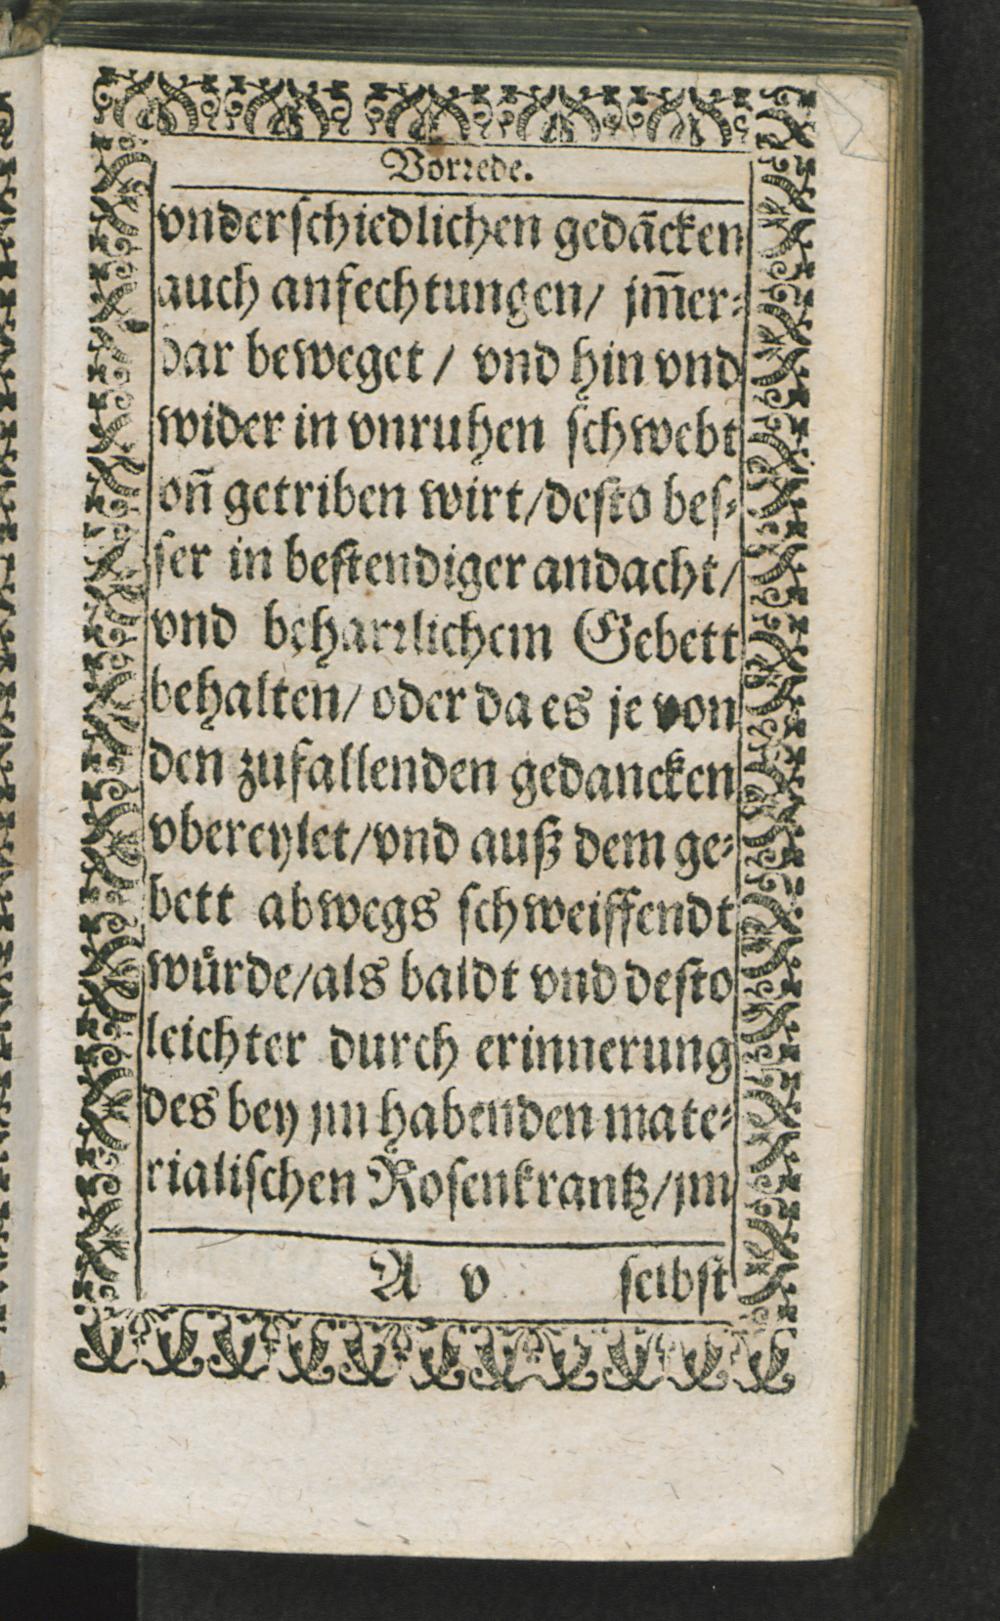 Vorrede.
vnderſchiedlichen gedãcken
auch anfechtungen/ jm̃er⸗
dar beweget / vnd hin vnd
wider in vnruhen ſchwebt
vñ getriben wirt/deſto beſ⸗
ſer in beſtendiger andacht/
vnd beharrlichem Gebett
behalten/ oder da es je von
den zufallenden gedancken
vbereylet/vnd auß dem ge⸗
bett abwegs ſchweiffendt
wuͤrde/als baldt vnd deſto
leichter durch erinnerung
des bey jm habenden mate⸗
rialiſchen Roſenkrantz/jm
A v ſelbſt